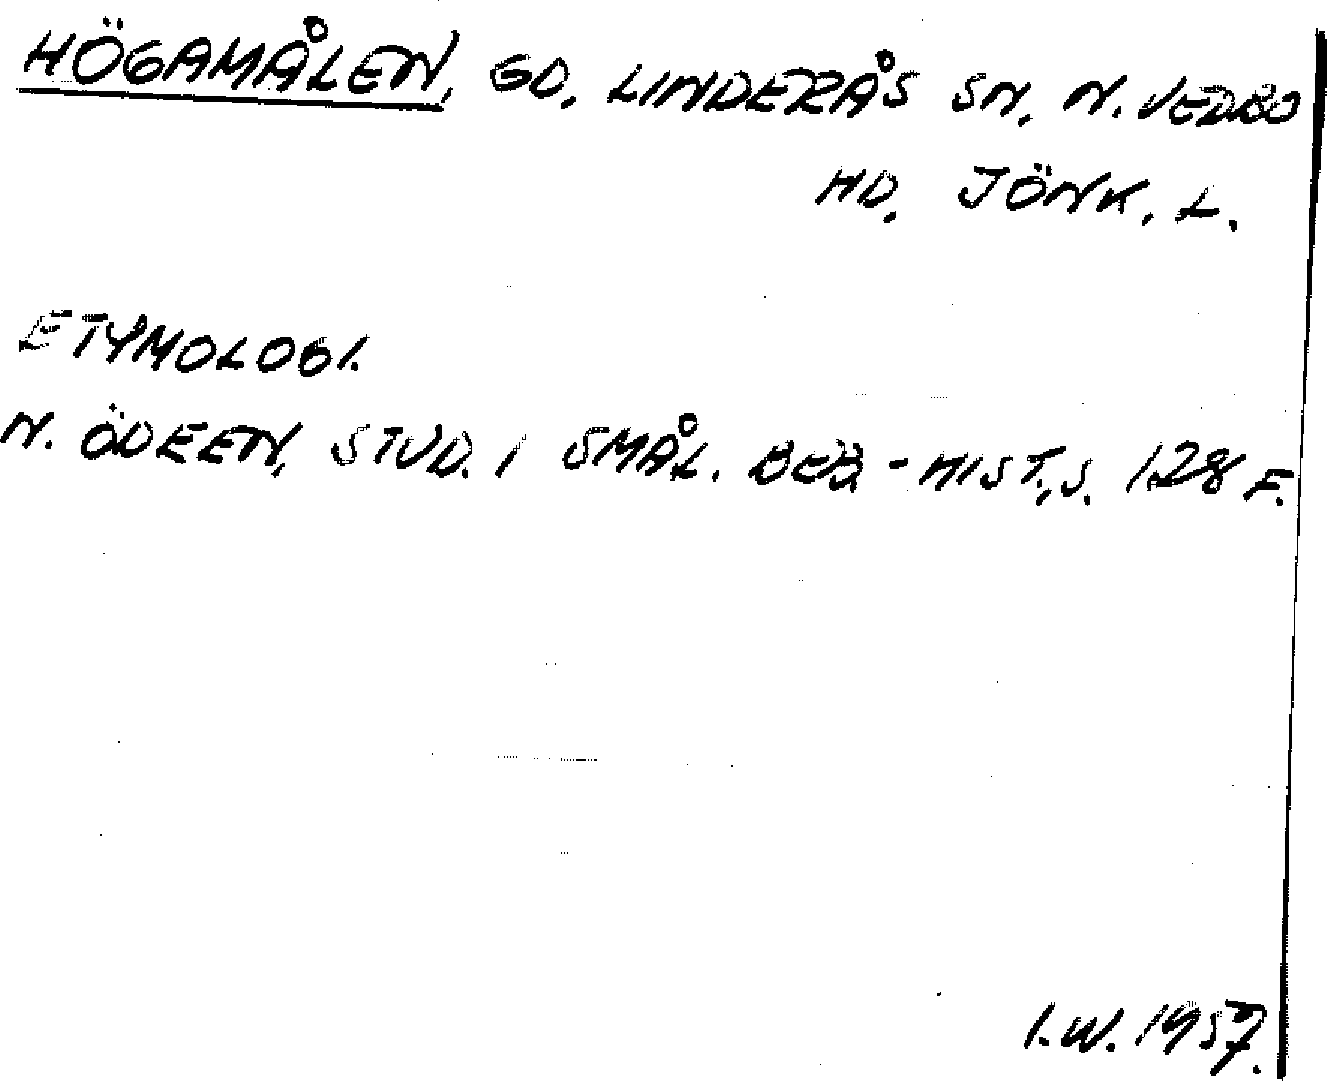 HÖGAMÅLEN, GD. LINDERÅS SN, N. VEDBO
HD. JÖNK. L.
ETYMOLOGI.
N. ÖDEEN, STUD. I SMÅL. BEB-HIST., S. 128 F.
I.W. 1957.